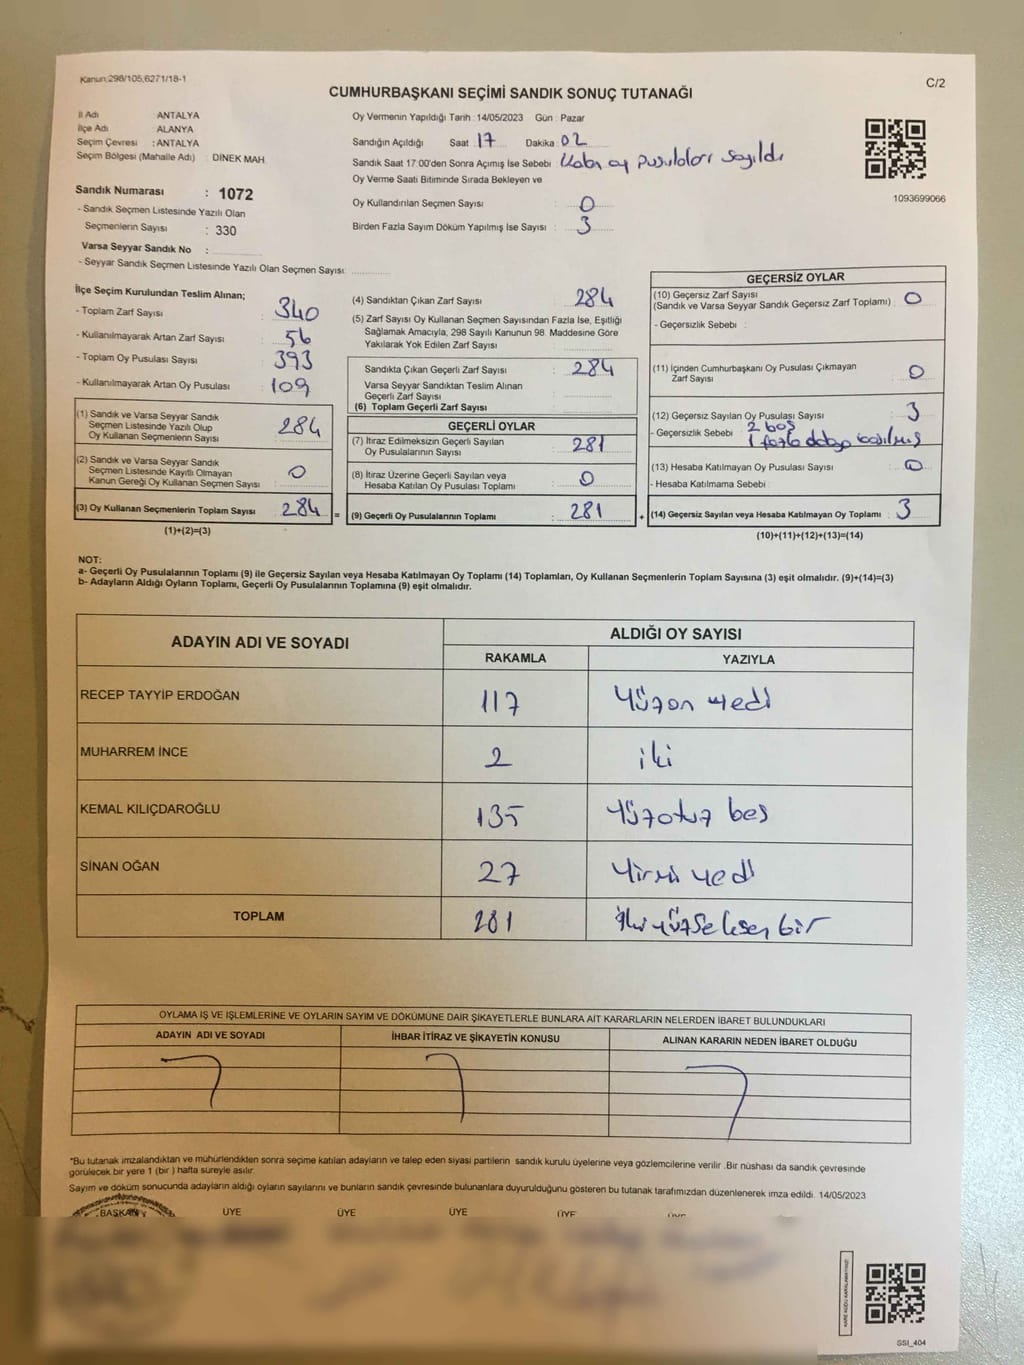 Kanun;298/105,6271/18-1
C/2
CUMHURBAŞKANI SEÇİMİ SANDIK SONUÇ TUTANAĞI
İl Adı ANTALYA
İlçe Adı ALANYA
Seçim Çevresi : ANTALYA
Seçim Bölgesi (Mahalle Adı) : DİNEK MAH.
Sandık Numarası : 1072
- Sandık Seçmen Listesinde Yazılı Olan
Seçmenlerin Sayısı : 330
Varsa Seyyar Sandık No :
- Seyyar Sandık Seçmen Listesinde Yazılı Olan Seçmen Sayısı:
Oy Vermenin Yapıldığı Tarih : 14/05/2023 Gün : Pazar
Sandığın Açıldığı Saat : 17 Dakika : 02
Sandık Saat 17:00'den Sonra Açımış İse Sebebi : Kaba oy pusulaları sayıldı
Oy Verme Saati Bitiminde Sırada Bekleyen ve
Oy Kullandırılan Seçmen Sayısı : 0
Birden Fazla Sayım Döküm Yapılmış İse Sayısı : 3
1093699066
İlçe Seçim Kurulundan Teslim Alınan;
- Toplam Zarf Sayısı : 340
- Kullanılmayarak Artan Zarf Sayısı : 56
- Toplam Oy Pusulası Sayısı : 393
- Kullanılmayarak Artan Oy Pusulası : 109
(1) Sandık ve Varsa Seyyar Sandık
Seçmen Listesinde Yazılı Olup
Oy Kullanan Seçmenlerin Sayısı : 284
(2) Sandık ve Varsa Seyyar Sandık
Seçmen Listesinde Kayıtlı Olmayan
Kanun Gereği Oy Kullanan Seçmen Sayısı : 0
(3) Oy Kullanan Seçmenlerin Toplam Sayısı : 284 =
(1)+(2)=(3)
(4) Sandıktan Çıkan Zarf Sayısı : 284
(5) Zarf Sayısı Oy Kullanan Seçmen Sayısından Fazla İse, Eşitliği
Sağlamak Amacıyla, 298 Sayılı Kanunun 98. Maddesine Göre
Yakılarak Yok Edilen Zarf Sayısı :
Sandıkta Çıkan Geçerli Zarf Sayısı : 284
Varsa Seyyar Sandıktan Teslim Alınan
Geçerli Zarf Sayısı :
(6) Toplam Geçerli Zarf Sayısı :
GEÇERLİ OYLAR
(7) İtiraz Edilmeksizin Geçerli Sayılan
Oy Pusulalarının Sayısı : 281
(8) İtiraz Üzerine Geçerli Sayılan veya
Hesaba Katılan Oy Pusulası Toplamı : 0
(9) Geçerli Oy Pusulalarının Toplamı : 281 +
GEÇERSİZ OYLAR
(10) Geçersiz Zarf Sayısı : 0
(Sandık ve Varsa Seyyar Sandık Geçersiz Zarf Toplamı)
- Geçersizlik Sebebi :
(11) İçinden Cumhurbaşkanı Oy Pusulası Çıkmayan
Zarf Sayısı : 0
(12) Geçersiz Sayılan Oy Pusulası Sayısı : 3
- Geçersizlik Sebebi : 2 boş
1 fazladan basılmış
(13) Hesaba Katılmayan Oy Pusulası Sayısı : 0
- Hesaba Katılmama Sebebi :
(14) Geçersiz Sayılan veya Hesaba Katılmayan Oy Toplamı : 3
(10)+(11)+(12)+(13)=(14)
NOT:
a- Geçerli Oy Pusulalarının Toplamı (9) ile Geçersiz Sayılan veya Hesaba Katılmayan Oy Toplamı (14) Toplamları, Oy Kullanan Seçmenlerin Toplam Sayısına (3) eşit olmalıdır. (9)+(14)=(3)
b- Adayların Aldığı Oyların Toplamı, Geçerli Oy Pusulalarının Toplamına (9) eşit olmalıdır.
ADAYIN ADI VE SOYADI
ALDIĞI OY SAYISI
RAKAMLA YAZIYLA
RECEP TAYYİP ERDOĞAN 117 Yüzon yedi
MUHARREM İNCE 2 iki
KEMAL KILIÇDAROĞLU 135 Yüzotuz beş
SİNAN OĞAN 27 Yirmi yedi
TOPLAM 281 İkiyüzseksen bir
OYLAMA İŞ VE İŞLEMLERİNE VE OYLARIN SAYIM VE DÖKÜMÜNE DAİR ŞİKAYETLERLE BUNLARA AİT KARARLARIN NELERDEN İBARET BULUNDUKLARI
ADAYIN ADI VE SOYADI İHBAR İTİRAZ VE ŞİKAYETİN KONUSU ALINAN KARARIN NEDEN İBARET OLDUĞU
*Bu tutanak imzalandıktan ve mühürlendikten sonra seçime katılan adayların ve talep eden siyasi partilerin sandık kurulu üyelerine veya gözlemcilerine verilir .Bir nüshası da sandık çevresinde
görülecek bir yere 1 (bir ) hafta süreyle asılır.
Sayım ve döküm sonucunda adayların aldığı oyların sayılarını ve bunların sandık çevresinde bulunanlara duyurulduğunu gösteren bu tutanak tarafımızdan düzenlenerek imza edildi. 14/05/2023
BAŞKAN ÜYE ÜYE ÜYE ÜYE ÜYE
SSI_404